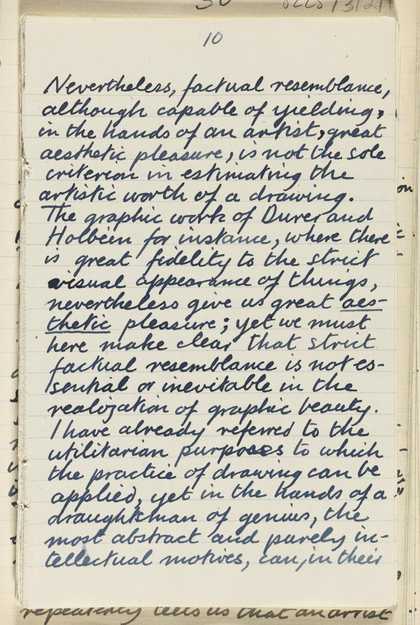 10
Nevertheless, factual resemblance,
although capable of yielding,
in the hands of an artist, great
aesthetic pleasure, is not the sole
criterion in estimating the
artistic worth of a drawing.
The graphic work of Durer and
Holbein for instance, where there
is great fidelity to the strict
visual appearance of things,
nevertheless give us great aes-
thetic pleasure; yet we must
here make clear that strict
factual resemblance is not es-
sential or inevitable in the
realization of graphic beauty.
I have already referred to the
utilitarian purposes to which
the practice of drawing can be
applied, yet in the hands of a
draughtsman of genius, the
most abstract and purely in-
tellectual motives, can, in their
repeatedly tells us that an artist